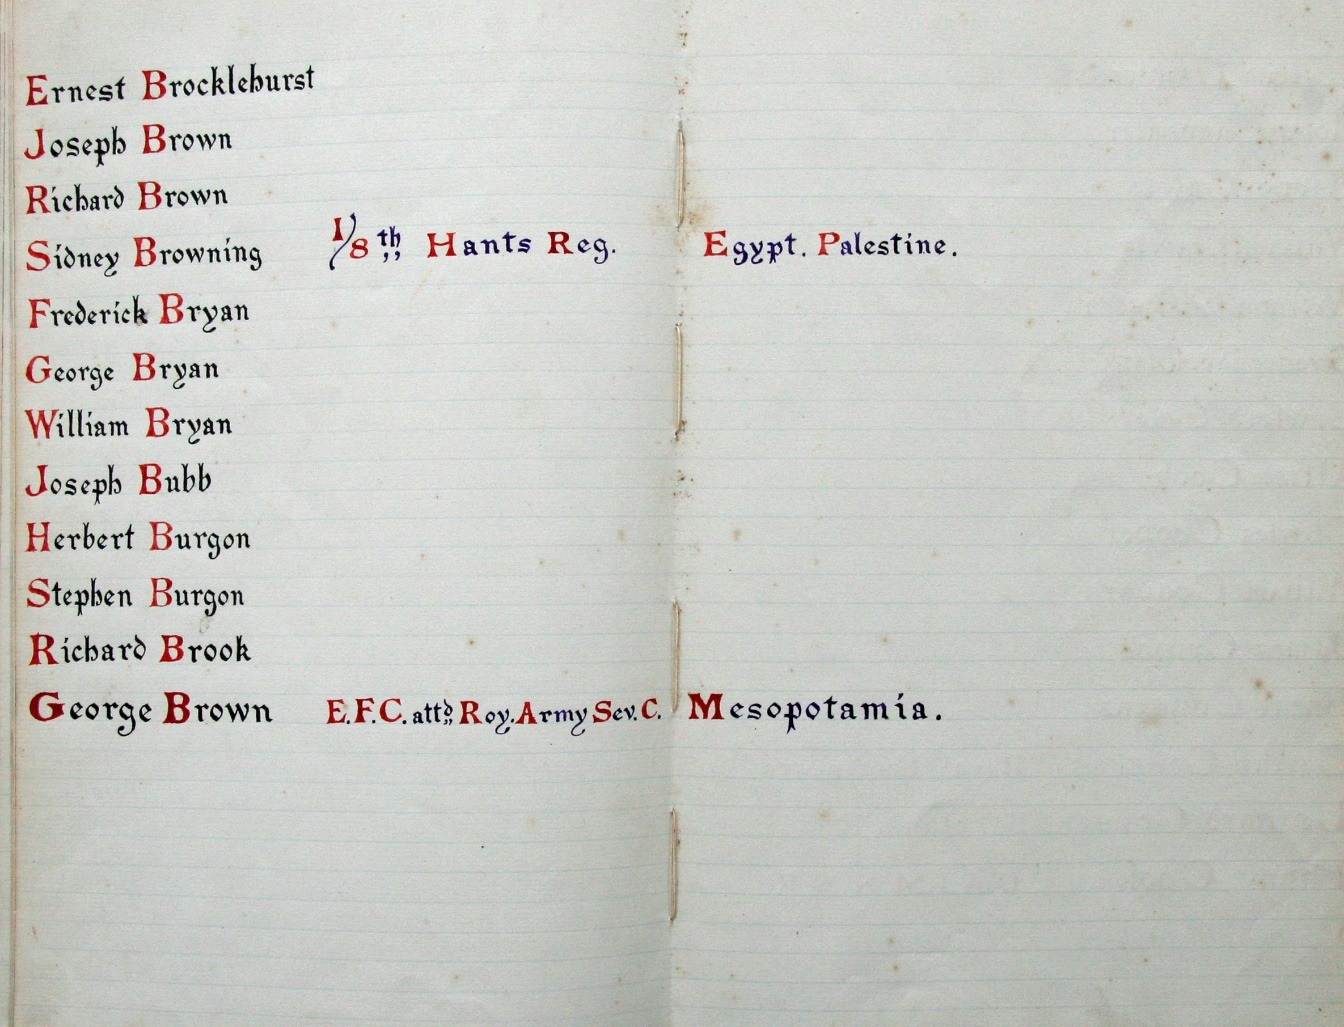 Ernest Brocklehurst
Joseph Brown
Richard Brown
Sidney Browning 1/8th Hants Reg. Egypt. Palestine.
Frederick Bryan
George Bryan
William Bryan
Joseph Bubb
Herbert Burgon
Stephen Burgon
Richard Brook
George Brown E.F.C. attd Roy. Army Sev. C. Mesopotamia.